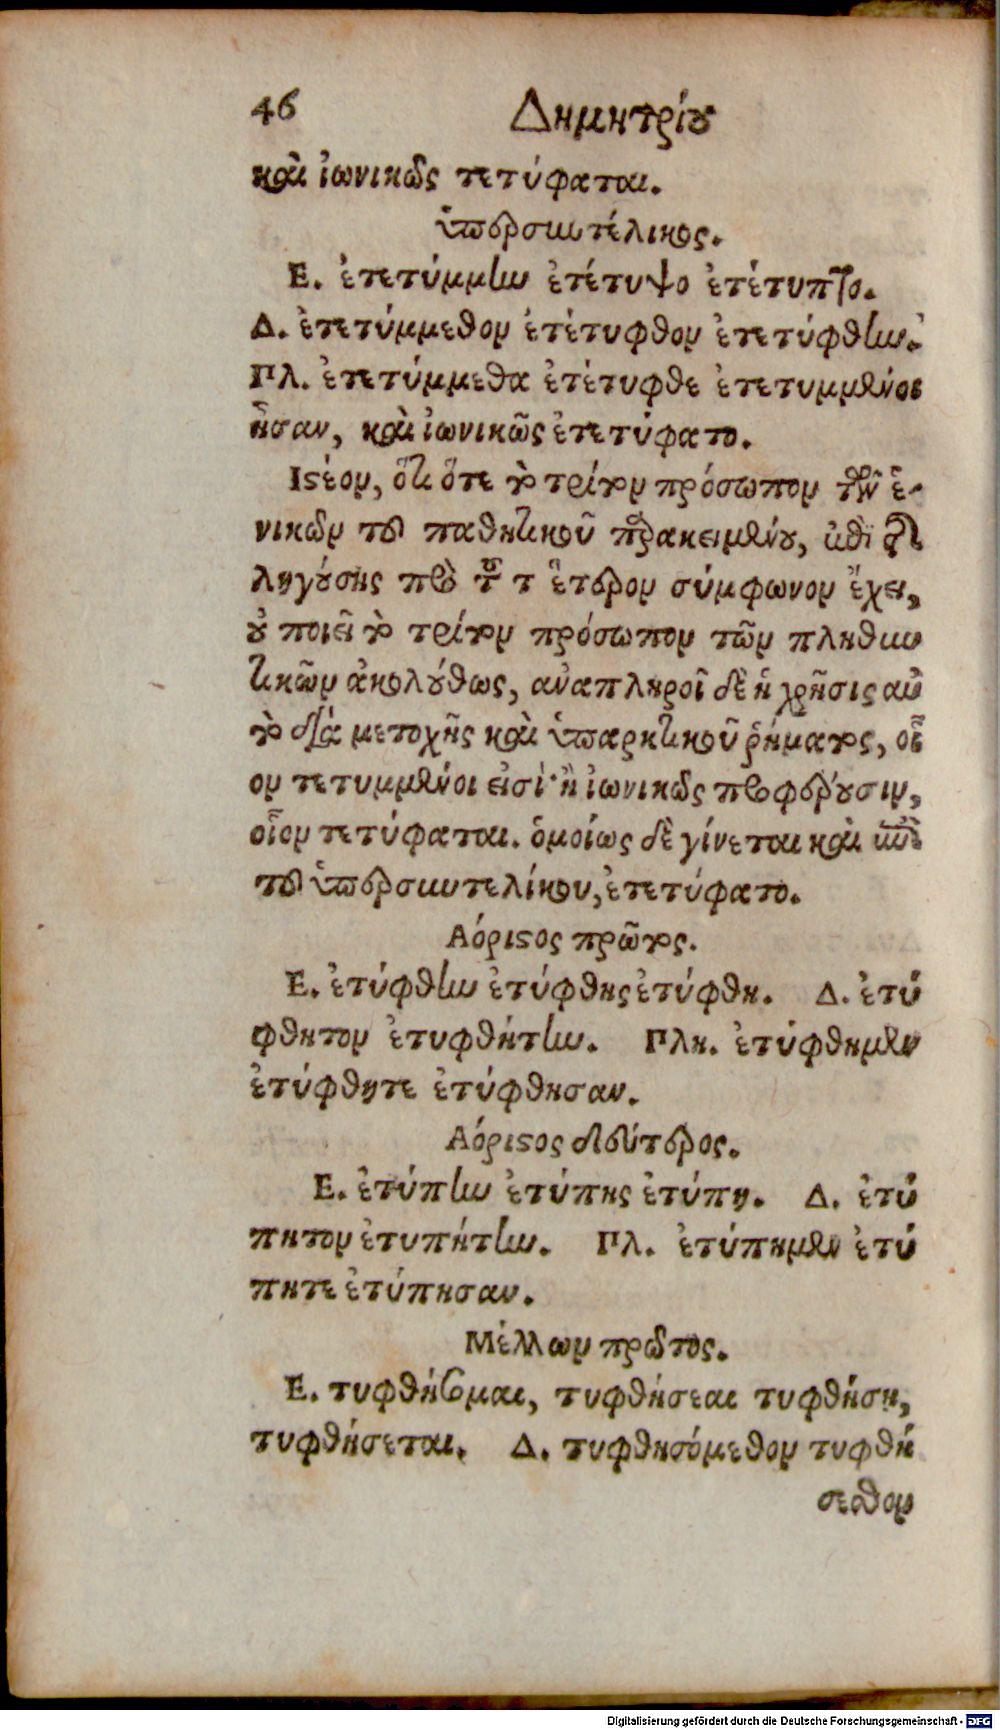 46 Δημητρίου
καὶ ἰωνικῶς τετύφαται.
ὑπερσυντέλικος.
Ε. ἐτετύμμην ἐτέτυψο ἐτέτυπτο.
Δ. ἐτετύμμεθον ἐτέτυφθον ἐτετύφθην.
Πλ. ἐτετύμμεθα ἐτέτυφθε ἐτετυμμένοι
ἦσαν, καὶ ἰωνικῶς ἐτετύφατο.
Ιστέον, ὅτι ὅτε τὸ τρίτον πρόσωπον τῶν ἑ-
νικῶν τοῦ παθητικοῦ παρακειμένου,
ληγούσης πρὸ τοῦ τ ἕτερον σύμφωνον ἔχει,
οὐ ποιεῖ τὸ τρίτον πρόσωπον τῶν πληθυν
τικῶν ἀκολούθως, ἀναπληροῖ δὲ ἡ χρῆσις αὐ
τὸ διὰ μετοχῆς καὶ ὑπαρκτικοῦ ῥήματος, οἷ
ον τετυμμένοι εἰσί· ἢ ἰωνικῶς προφέρουσιν,
οἷον τετύφαται. ὁμοίως δὲ γίνεται καὶ ἐπὶ
τοῦ ὑπερσυντελίκου, ἐτετύφατο.
Αόριστος πρῶτος.
Ε. ἐτύφθην ἐτύφθης ἐτύφθη. Δ. ἐτύ
φθητον ἐτυφθήτην. Πλη. ἐτύφθημεν
ἐτύφθητε ἐτύφθησαν.
Αόριστος δεύτερος.
Ε. ἐτύπην ἐτύπης ἐτύπη. Δ. ἐτύ
πητον ἐτυπήτην. Πλ. ἐτύπημεν ἐτύ
πητε ἐτύπησαν.
Μέλλων πρῶτος.
Ε. τυφθήσομαι, τυφθήσεαι τυφθήσῃ,
τυφθήσεται. Δ. τυφθησόμεθον τυφθή
σεσθον
Digitalisierung gefördert durch die Deutsche Forschungsgemeinschaft - DFG